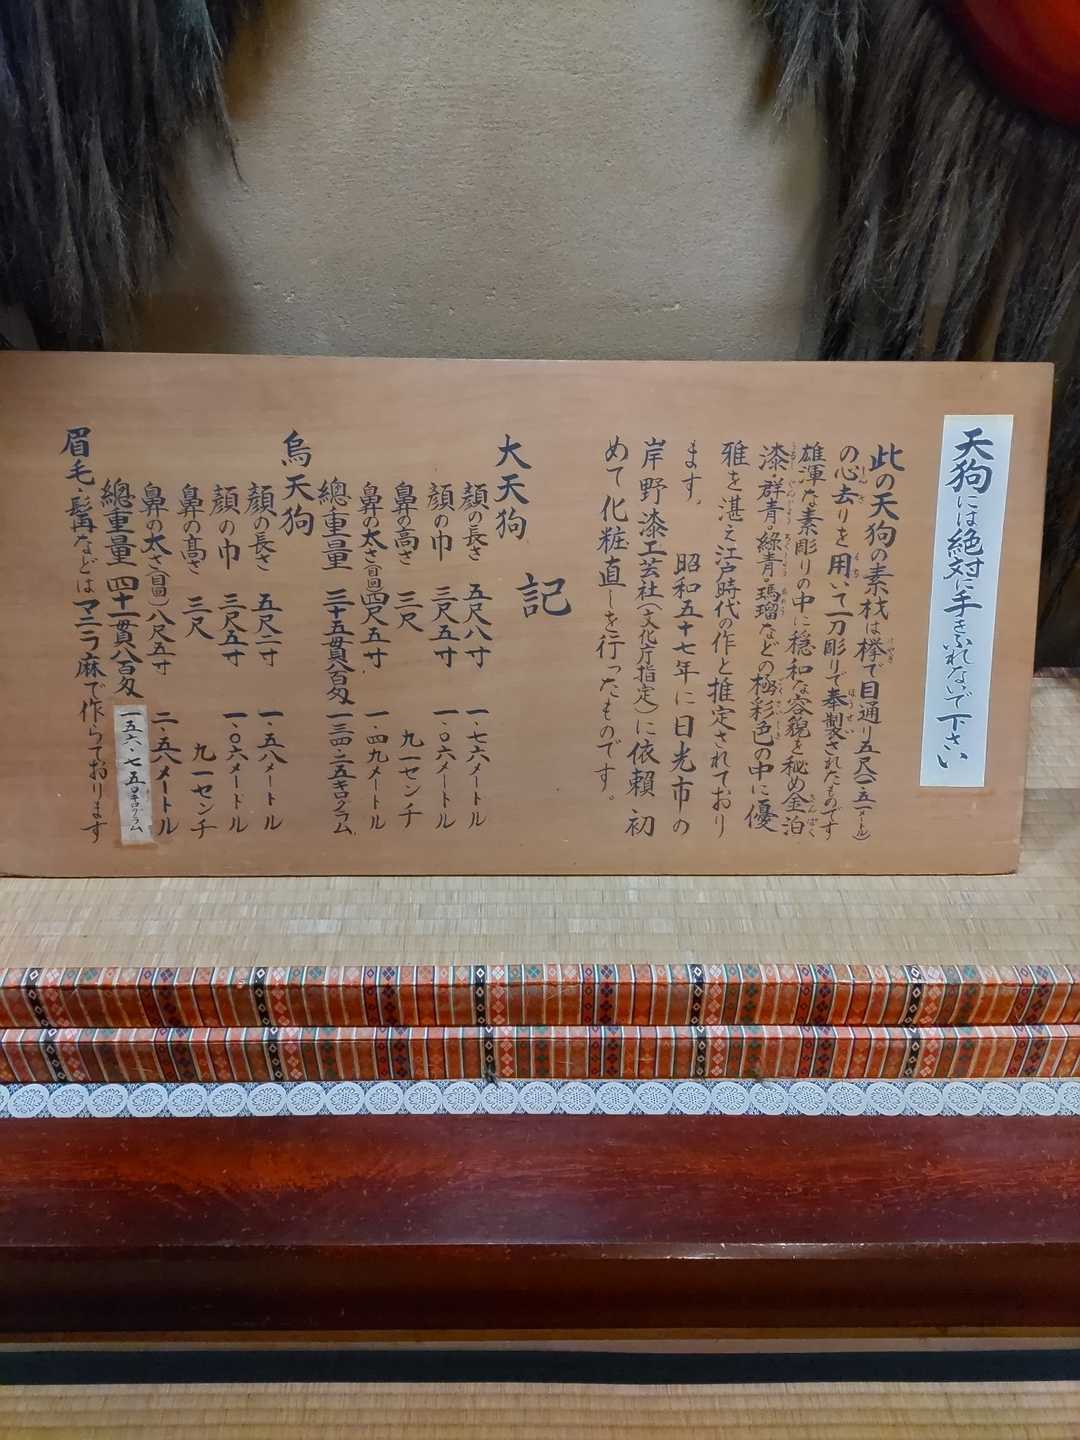 天狗には絶対に手をふれないで下さい
此の天狗の素材は欅で目通り五尺(一・五一メートル)
の心去りを用いて一刀彫りで奉製されたものです
雄渾な素彫りの中に穏和な容貌を秘め金泊
漆・群青・緑青・瑪瑠などの極彩色の中に優
雅を湛え江戸時代の作と推定されており
ます。 昭和五十七年に日光市の
岸野漆工芸社(文化庁指定)に依頼 初
めて化粧直しを行ったものです。
記
大天狗
顔の長さ 五尺八寸 一・七六メートル
顔の巾 三尺五寸 一・〇六メートル
鼻の高さ 三尺 九一センチ
鼻の太さ(目回)四尺五寸 一・四九メートル
總重量 三十五貫八百匁 一三四・二五キログラム
烏天狗
顔の長さ 五尺二寸 一・五八メートル
顔の巾 三尺五寸 一・〇六メートル
鼻の高さ 三尺 九一センチ
鼻の太さ(目回)八尺五寸 二・五八メートル
總重量 四十一貫八百匁 一五六・七五キログラム
眉毛・髯などはマニラ麻で作られております